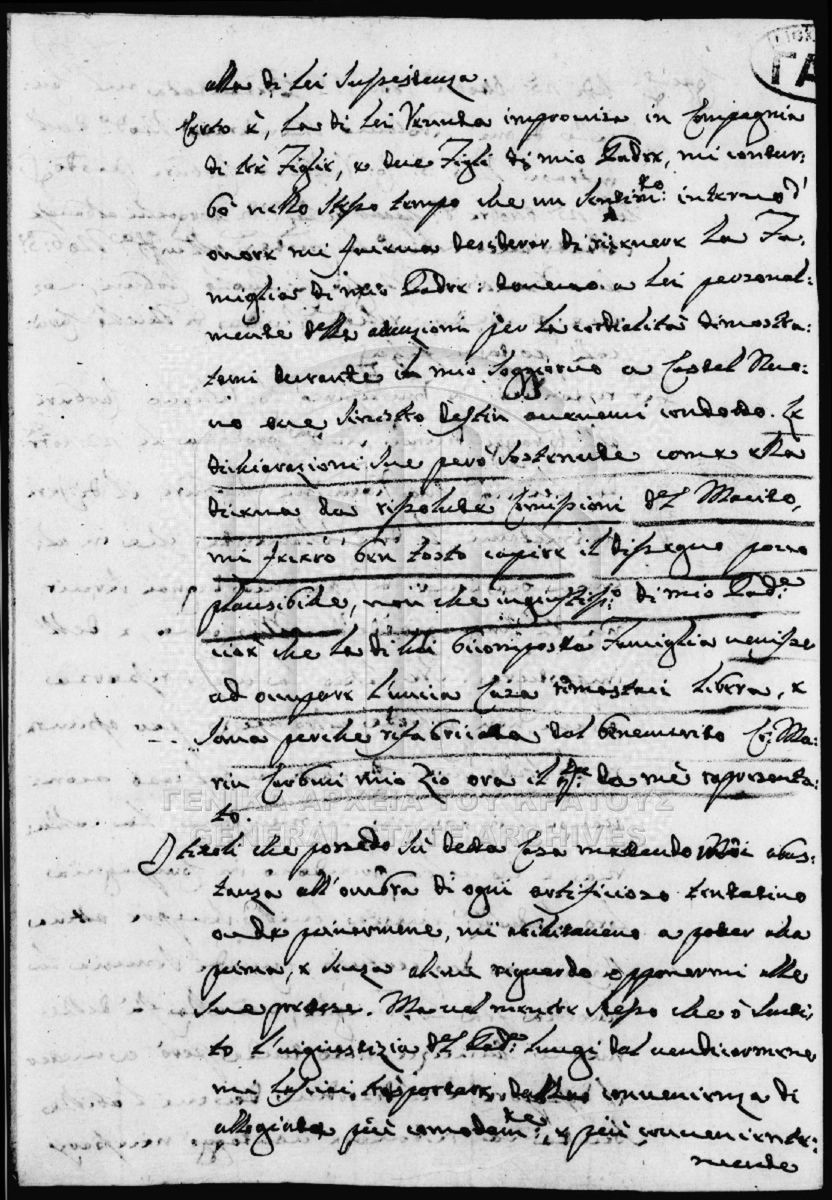 alla di Lei susistenza.
Certo è, La di Lei Venuta improvisa in Compagnia
di trè Figlie, e due Figli di mio Padre, mi contur:
bò nello stesso tempo che un sentim:to interno d'
onore mi faceva desiderar di La Fa:
miglia di mio Padre: dovevo a Lei personal:
mente delle attenzioni per la cordialità dimostra:
temi durante il mio soggiorno a Castel Nuo:
vo ove sinistro destin aveavemi condotto. Le
dichiarazioni sue però sostenute come ella
diceva da rissolute Comissioni del Marito,
mi fecero ben tosto capire il dissegno poco
plausibile, non che ingiustiss:o di mio Pad:e
cioè che La di Lei Famiglia venisse
ad occupare l'unica Casa rimastaci libera, e
sana perche rifabricata dal benemerito Ma:
rin mio Zio ora il da mè rapresenta:
to.
titoli che possedo sù detta Casa mettendo abas:
tanza all'ombra di ogni artificioso tentativo
onde privarmene, mi abilitavano a poter alla
prima, e senza alcun riguardo opponermi alle
sue pretese. Ma nel mentre stesso che ò senti:
to l'ingiustizia del Pad:e lungi dal vendicarmene
mi lasciai trasportare convenienza di
allogiarla più comodam:te, e più conveniente:
mente
ΓΑ
ΓΕΝΙΚΑ ΑΡΧΕΙΑ ΤΟΥ ΚΡΑΤΟΥΣ
GENERAL STATE ARCHIVES